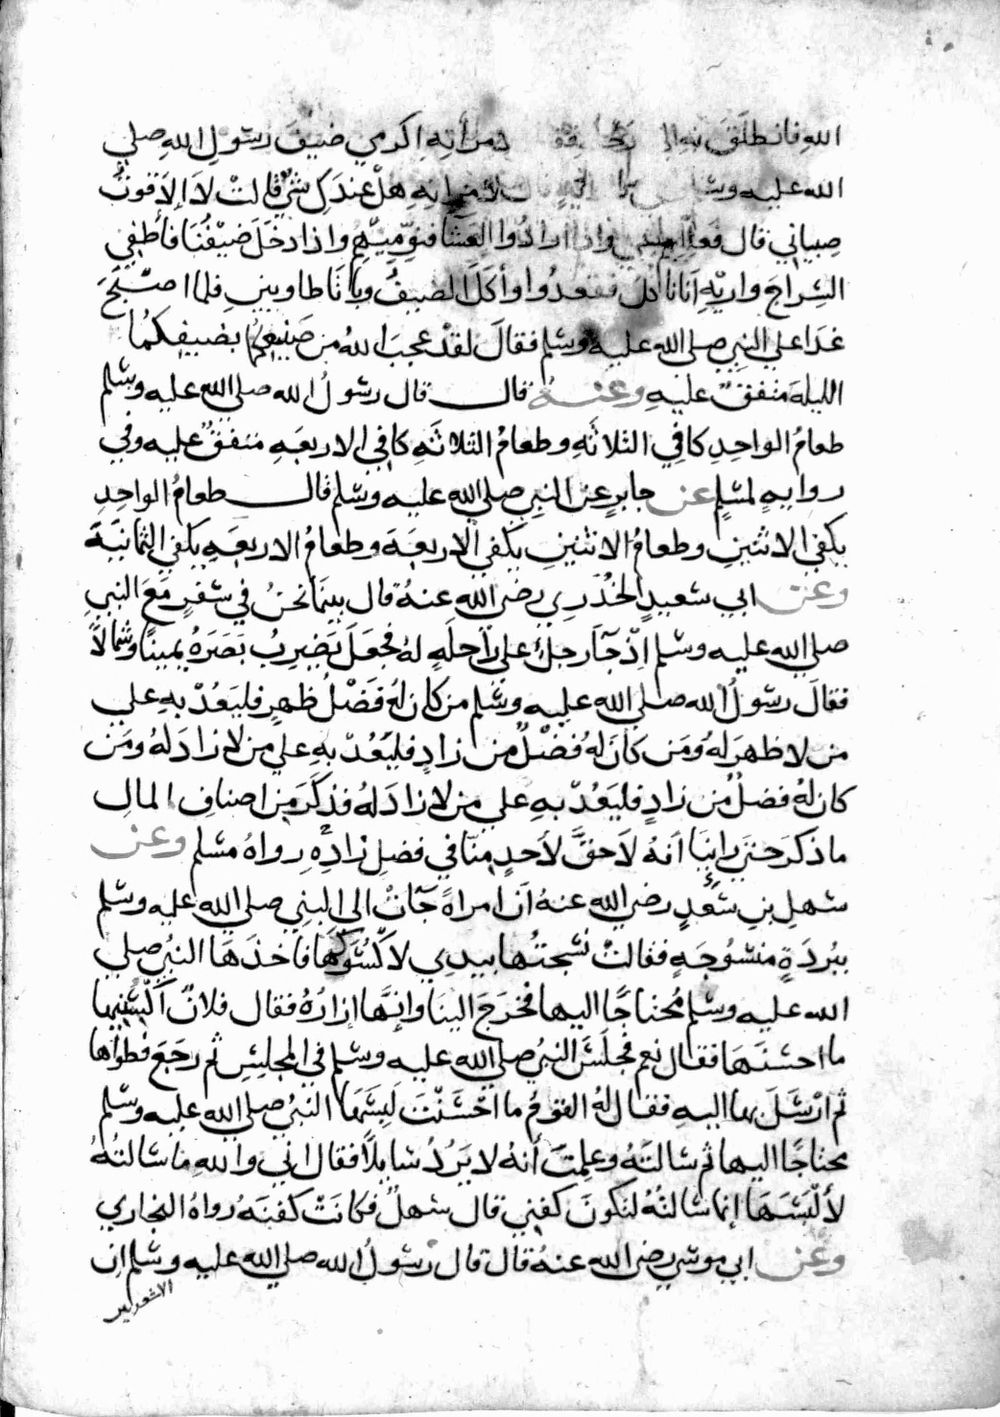 الله فانطلق به الى رحله فقال لامرأته اكرمي ضيف رسول الله صلى
الله عليه وسلم قال لامرأته هل عندك شئ قالت لا إلا قوت
صبياني قال فعلليهم بشئ واذا ارادوا العشا فنوميهم واذا دخل ضيفنا فأطفي
السراج واريه انا نأكل فقعدوا وأكل الضيف وباتا طاويين فلما اصبح
غدا على النبي صلى الله عليه وسلم فقال لقد عجب الله من صنيعكما بضيفكما
الليلة متفق عليه وعنه قال قال رسول الله صلى الله عليه وسلم
طعام الواحد كافي الثلاثه وطعام الثلاثه كافي الاربعه متفق عليه وفي
روايه لمسلم عن جابر عن النبي صلى الله عليه وسلم قال طعام الواحد
يكفي الاثنين وطعام الاثنين يكفي الاربعة وطعام الاربعه يكفي الثمانية
وعن ابي سعيد الخدري رضي الله عنه قال بينما نحن في سفر مع النبي
صلى الله عليه وسلم اذ جآ رجل على راحله له فجعل يضرب بصره يمينا وشمالا
فقال رسول الله صلى الله عليه وسلم من كان له فضل ظهر فليعد به على
من لا ظهر له ومن كان له فضل من زاد فليعد به على من لا زاد له ومن
كان له فضل من زاد فليعد به على من لا زاد له فذكر من اصناف المال
ما ذكر حتى راينا انه لا حق لأحد منا في فضل زاده رواه مسلم وعن
سهل بن سعد رضي الله عنه ان امراة جآت الى النبي صلى الله عليه وسلم
ببردة منسوجه فقالت نسجتها بيدي لأكسوكها فاخذها النبي صلى
الله عليه وسلم محتاجا اليها فخرج الينا وانها إزاره فقال فلان اكسنيها
ما احسنها فقال نعم فجلس النبي صلى الله عليه وسلم في المجلس ثم رجع فطواها
ثم ارسل بها اليه فقال له القوم ما احسنت لبسها النبي صلى الله عليه وسلم
محتاجا اليها ثم سالته وعلمت أنه لا يرد سايلا فقال اني والله ما سالته
لألبسها إنما سالته لتكون كفني قال سهل فكانت كفنه رواه البخاري
وعن ابي موسى رضي الله عنه قال قال رسول الله صلى الله عليه وسلم ان
الاشعريين